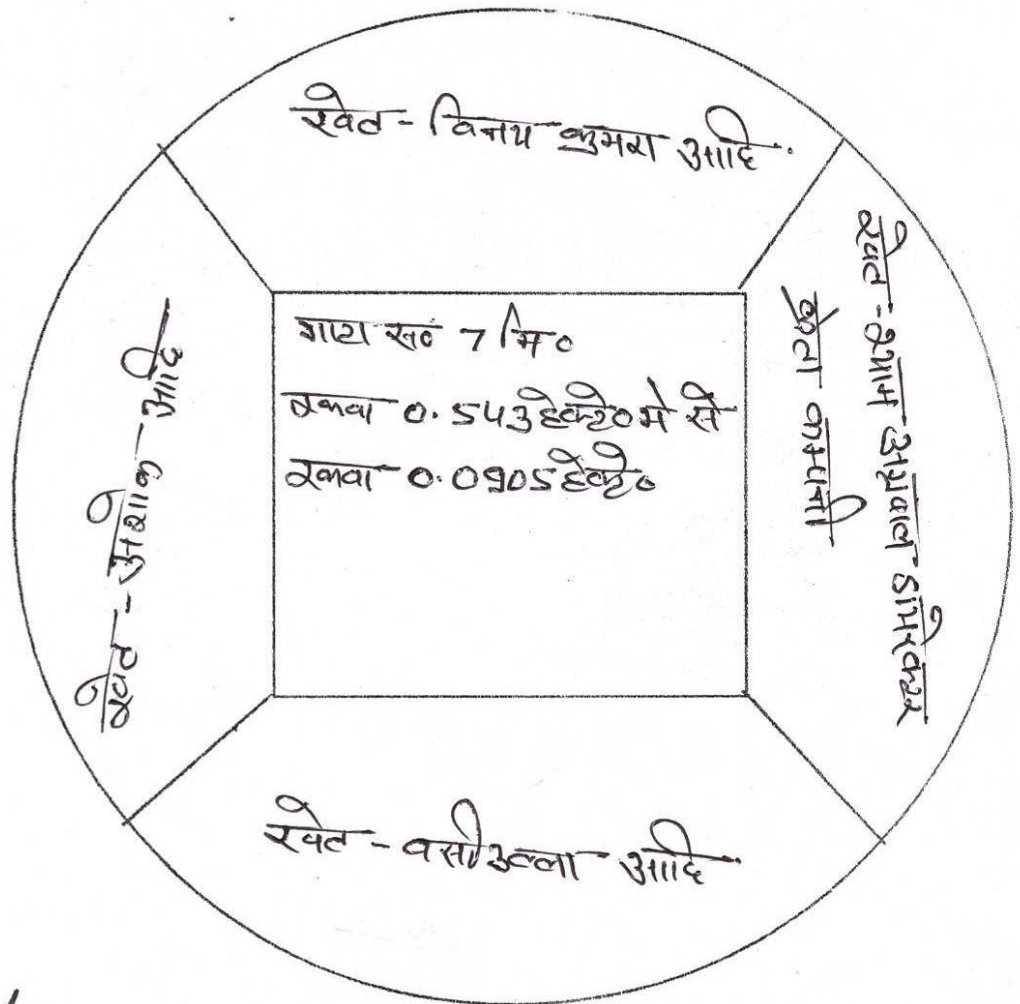 खेत - विनय कुमार आदि
खेत - अशोक - आदि
गाटा सं० 7 मि०
रकवा 0.543हेक्टे० मे से
रकवा 0.0905हेक्टे०
खेत - श्याम अग्रवाल डायरेक्टर
क्रेता कम्पनी
खेत - वसीउल्ला आदि